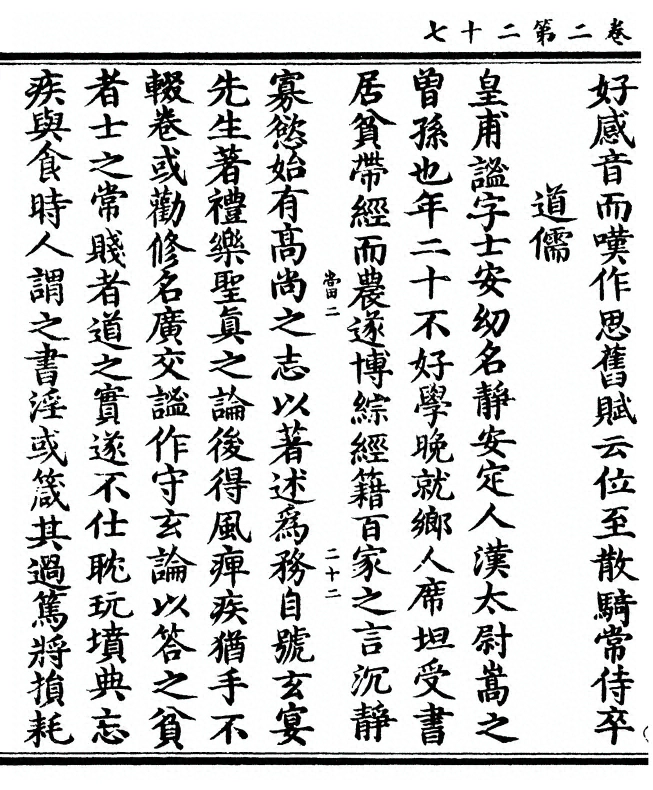 卷二第二十七
好感音而嘆作思舊賦云位至散騎常侍卒
道儒
皇甫謐字士安幼名靜安定人漢太尉嵩之
曾孫也年二十不好學晚就鄉人席坦受書
居貧帶經而農遂博綜經籍百家之言沉靜
當二
二十二
寡慾始有高尚之志以著述爲務自號玄宴
先生著禮樂聖眞之論後得風痺疾猶手不
輟卷或勸修名廣交謐作守玄論以答之貧
者士之常賤者道之實遂不仕耽玩墳典忘
疾與食時人謂之書淫或箴其過篤將損耗